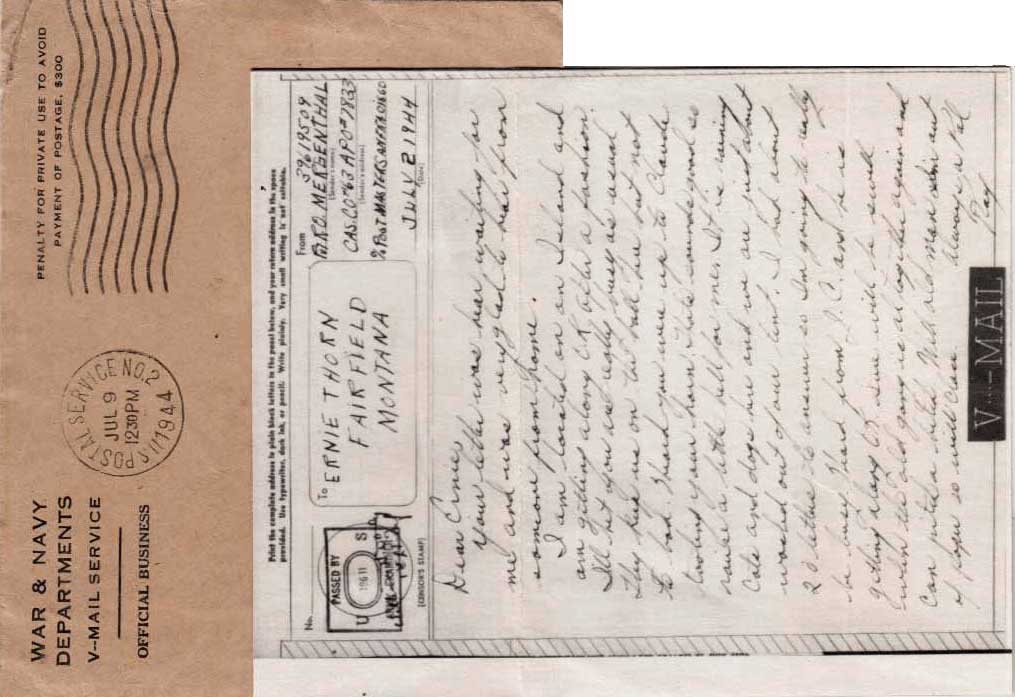 WAR & NAVY
DEPARTMENTS
V--MAIL SERVICE
OFFICIAL BUSINESS
U.S. POSTAL SERVICE NO. 2
JUL 9
12 30 PM
1944
PENALTY FOR PRIVATE USE TO AVOID
PAYMENT OF POSTAGE, $300
Print the complete address in plain block letters in the panel below, and your return address in the space
provided. Use typewriter, dark ink, or pencil. Write plainly. Very small writing is not suitable.
No.
PASSED BY
U S
(CENSOR'S STAMP)
To
ERNIE THORN
FAIRFIELD
MONTANA
From
39619509
MERGENTHAL
(Sender's name)
CAS. CO #63 APO #7833
(Sender's address)
% POST MASTER SAN FRANCISCO
JULY 2 1944
(Date)
Dear Ernie,
Your letter was hear waiting for
me and was very glad to hear from
someone from home.
I am located on an Island and
am getting along O.K. after a fashion
I'll bet you are really busy as usual
They keep us on the ball here but not
to bad. I heard you were up to Claude
looking your horn. That sounds good so
raise a little hell for me. It is raining
Cats and dogs here and we are just about
washed out of our tent. I had about
20 letters to answer so Im going to really
be busy. I heard from J. C. and he is
getting along O.K. Sure will be swell
when the old gang is all together again and
Can pitch a bitch. Well old man
of paper so will Close
Always a Pal
Ray
V--MAIL